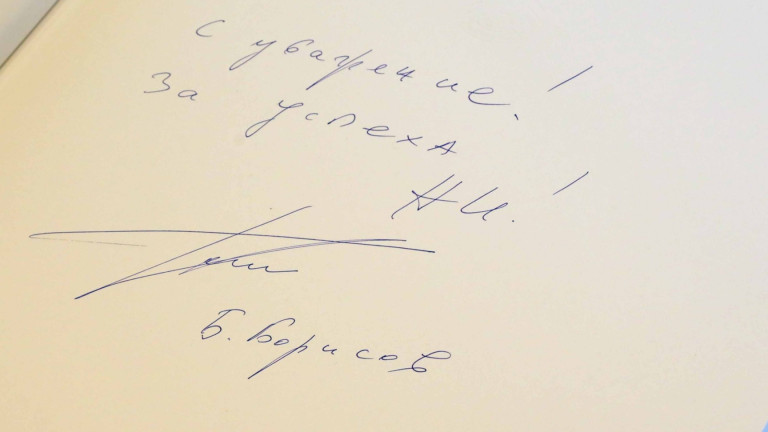 С уважение!
За успеха
Ѝ!
Б. Борисов